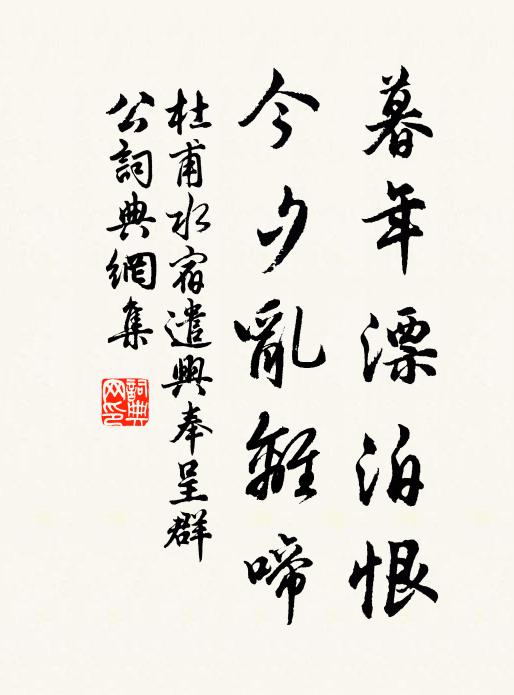 暮年漂泊恨
今夕亂離啼
杜甫水宿遣興奉呈群
公詞典網集
詞典
网印